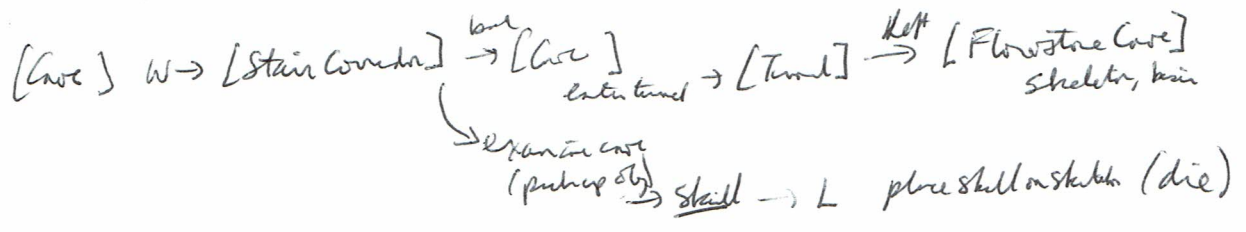 [Cave] W → [Stair Corridor] back → [Cave] enter tunnel → [Tunnel] → left [Flowstone Cave]
skeleton, basin
examine cave
(pick up obj)
→ skull → L place skull on skeleton (die)